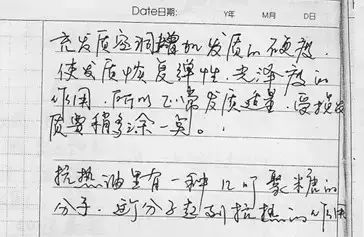 Date日期: Y年 M月 D日
充发质密相增加发质的硬度.
使发质恢复弹性.光泽度的
作用.所以正常发质适量.受损发
质要稍多涂一点。
抗热油里有一种叫聚糖的
分子.这个分子起到抗热的作用